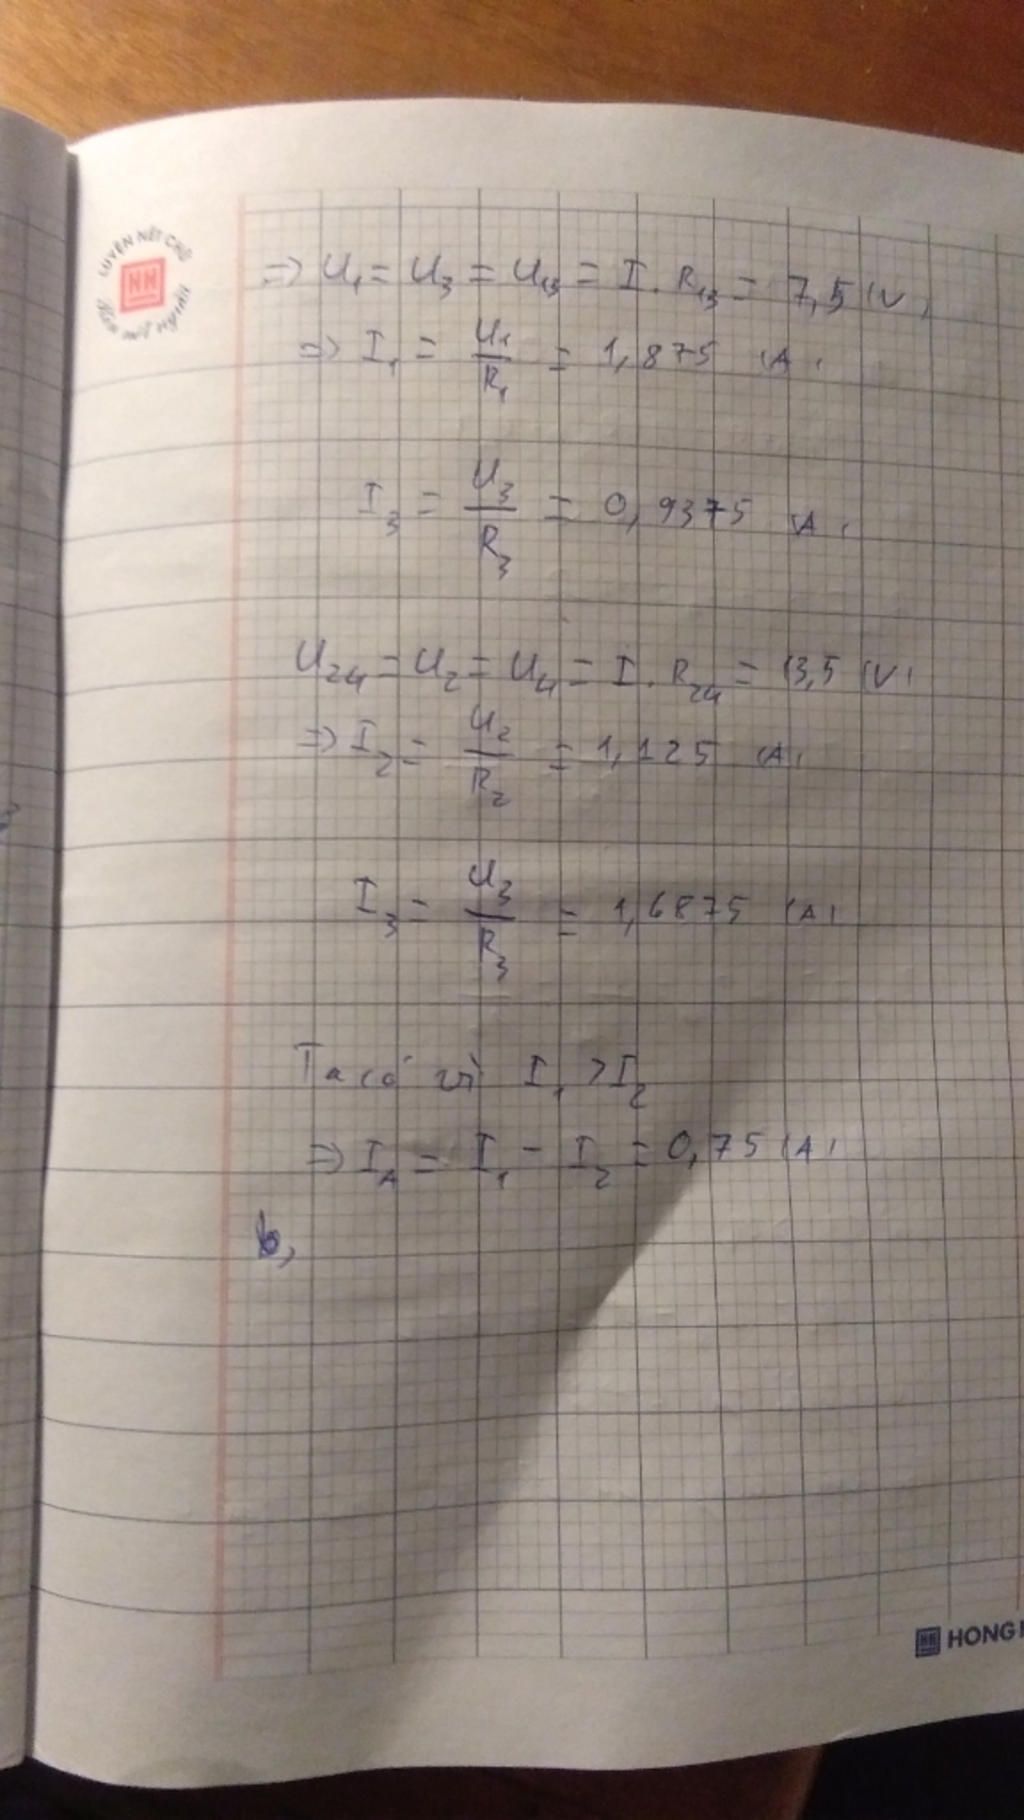 LUYỆN NÉT CHỮ
Rèn một người
⇒ U₁ = U₃ = U₁₃ = I . R₁₃ = 7,5 (V)
⇒ I₁ = U₁/R₁ = 1,875 (A)
I₃ = U₃/R₃ = 0,9375 (A)
U₂₄ = U₂ = U₄ = I . R₂₄ = 13,5 (V)
⇒ I₂ = U₂/R₂ = 1,125 (A)
I₃ = U₃/R₃ = 1,6875 (A)
Ta có vì I₁ > I₂
⇒ I_A = I₁ - I₂ = 0,75 (A)
b,
HH HONG